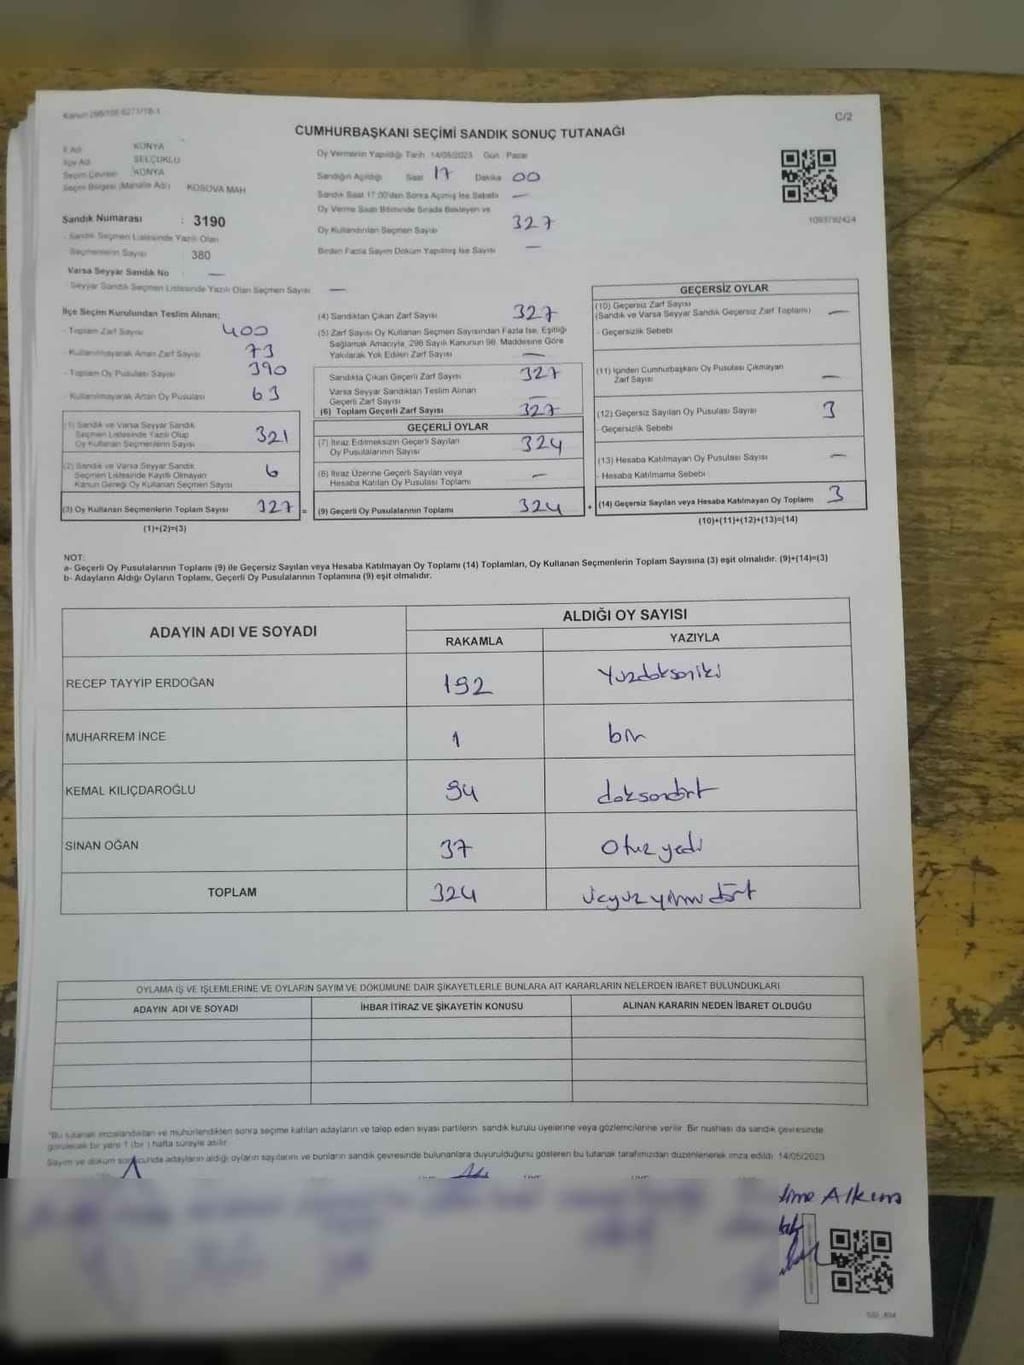 Kanun 298/105-6271/1B-1
C/2
CUMHURBAŞKANI SEÇİMİ SANDIK SONUÇ TUTANAĞI
İl Adı KONYA
İlçe Adı SELÇUKLU
Seçim Çevresi KONYA
Seçim Bölgesi (Mahalle Adı) KOSOVA MAH
Sandık Numarası : 3190
Sandık Seçmen Listesinde Yazılı Olan
Seçmenlerin Sayısı 380
Varsa Seyyar Sandık No —
Seyyar Sandık Seçmen Listesinde Yazılı Olan Seçmen Sayısı —
Oy Vermenin Yapıldığı Tarih 14/05/2023 Gün Pazar
Sandığın Açıldığı Saat 17 Dakika 00
Sandık Saat 17.00'den Sonra Açılmış İse Sebebi —
Oy Verme Saati Bitiminde Sırada Bekleyen ve
Oy Kullandırılan Seçmen Sayısı 327
Birden Fazla Sayım Döküm Yapılmış İse Sayısı —
1093792424
İlçe Seçim Kurulundan Teslim Alınan;
- Toplam Zarf Sayısı 400
- Kullanılmayarak Artan Zarf Sayısı 73
- Toplam Oy Pusulası Sayısı 390
- Kullanılmayarak Artan Oy Pusulası 63
(1) Sandık ve Varsa Seyyar Sandık
Seçmen Listesinde Yazılı Olup
Oy Kullanan Seçmenlerin Sayısı 321
(2) Sandık ve Varsa Seyyar Sandık
Seçmen Listesinde Kayıtlı Olmayan
Kanun Gereği Oy Kullanan Seçmen Sayısı 6
(3) Oy Kullanan Seçmenlerin Toplam Sayısı 327 =
(1)+(2)=(3)
(4) Sandıktan Çıkan Zarf Sayısı 327
(5) Zarf Sayısı Oy Kullanan Seçmen Sayısından Fazla İse, Eşitliği
Sağlamak Amacıyla, 298 Sayılı Kanunun 98. Maddesine Göre
Yakılarak Yok Edilen Zarf Sayısı —
Sandıkta Çıkan Geçerli Zarf Sayısı 327
Varsa Seyyar Sandıktan Teslim Alınan
Geçerli Zarf Sayısı —
(6) Toplam Geçerli Zarf Sayısı 327
GEÇERLİ OYLAR
(7) İtiraz Edilmeksizin Geçerli Sayılan
Oy Pusulalarının Sayısı 324
(8) İtiraz Üzerine Geçerli Sayılan veya
Hesaba Katılan Oy Pusulası Toplamı —
(9) Geçerli Oy Pusulalarının Toplamı 324 +
GEÇERSİZ OYLAR
(10) Geçersiz Zarf Sayısı
(Sandık ve Varsa Seyyar Sandık Geçersiz Zarf Toplamı) —
- Geçersizlik Sebebi
(11) İçinden Cumhurbaşkanı Oy Pusulası Çıkmayan
Zarf Sayısı —
(12) Geçersiz Sayılan Oy Pusulası Sayısı 3
- Geçersizlik Sebebi
(13) Hesaba Katılmayan Oy Pusulası Sayısı —
- Hesaba Katılmama Sebebi
(14) Geçersiz Sayılan veya Hesaba Katılmayan Oy Toplamı 3
(10)+(11)+(12)+(13)=(14)
NOT:
a- Geçerli Oy Pusulalarının Toplamı (9) ile Geçersiz Sayılan veya Hesaba Katılmayan Oy Toplamı (14) Toplamları, Oy Kullanan Seçmenlerin Toplam Sayısına (3) eşit olmalıdır. (9)+(14)=(3)
b- Adayların Aldığı Oyların Toplamı, Geçerli Oy Pusulalarının Toplamına (9) eşit olmalıdır.
ADAYIN ADI VE SOYADI
ALDIĞI OY SAYISI
RAKAMLA YAZIYLA
RECEP TAYYİP ERDOĞAN 192 Yüzdoksaniki
MUHARREM İNCE 1 bir
KEMAL KILIÇDAROĞLU 94 doksandört
SİNAN OĞAN 37 Otuzyedi
TOPLAM 324 üçyüzyirmidört
OYLAMA İŞ VE İŞLEMLERİNE VE OYLARIN SAYIM VE DÖKÜMÜNE DAİR ŞİKAYETLERLE BUNLARA AİT KARARLARIN NELERDEN İBARET BULUNDUKLARI
ADAYIN ADI VE SOYADI İHBAR İTİRAZ VE ŞİKAYETİN KONUSU ALINAN KARARIN NEDEN İBARET OLDUĞU
*Bu tutanak imzalandıktan ve mühürlendikten sonra seçime katılan adayların ve talep eden siyasi partilerin sandık kurulu üyelerine veya gözlemcilerine verilir. Bir nüshası da sandık çevresinde
görülecek bir yere 1 (bir ) hafta süreyle asılır.
Sayım ve döküm sonucunda adayların aldığı oyların sayılarını ve bunların sandık çevresinde bulunanlara duyurulduğunu gösteren bu tutanak tarafımızdan düzenlenerek imza edildi. 14/05/2023